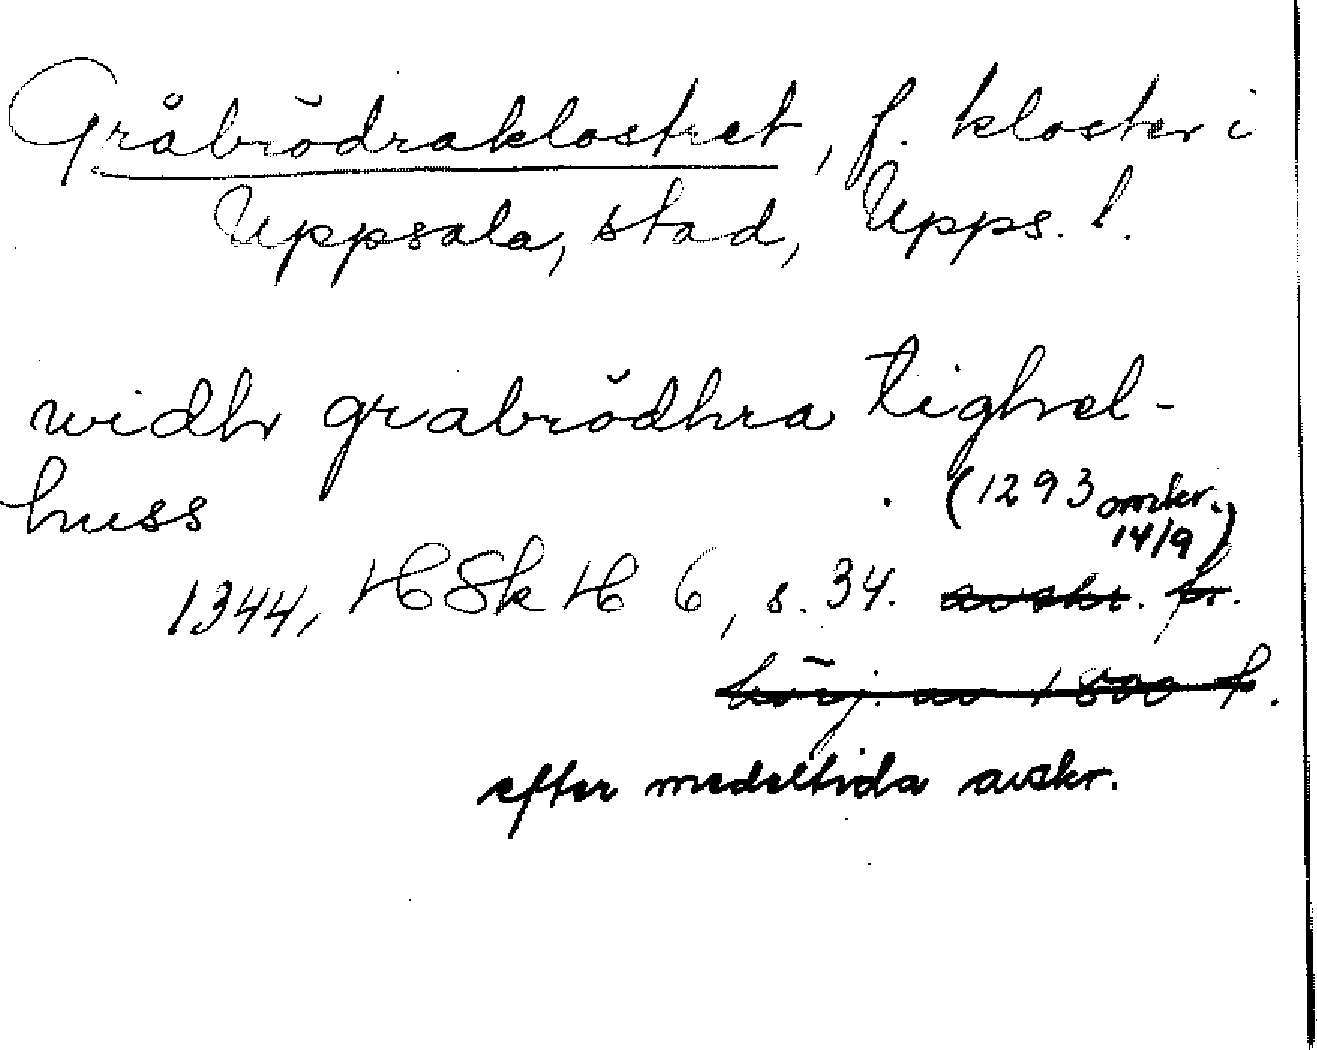 Gråbrödraklostret, f. kloster i
Uppsala, stad, Upps. l.
widh grabrödhra tighel-
huss . (1293 omkr.
14/9)
1344, HSkH 6, s. 34. avskr. fr.
börj. av 1800 t.
efter medeltida avskr.